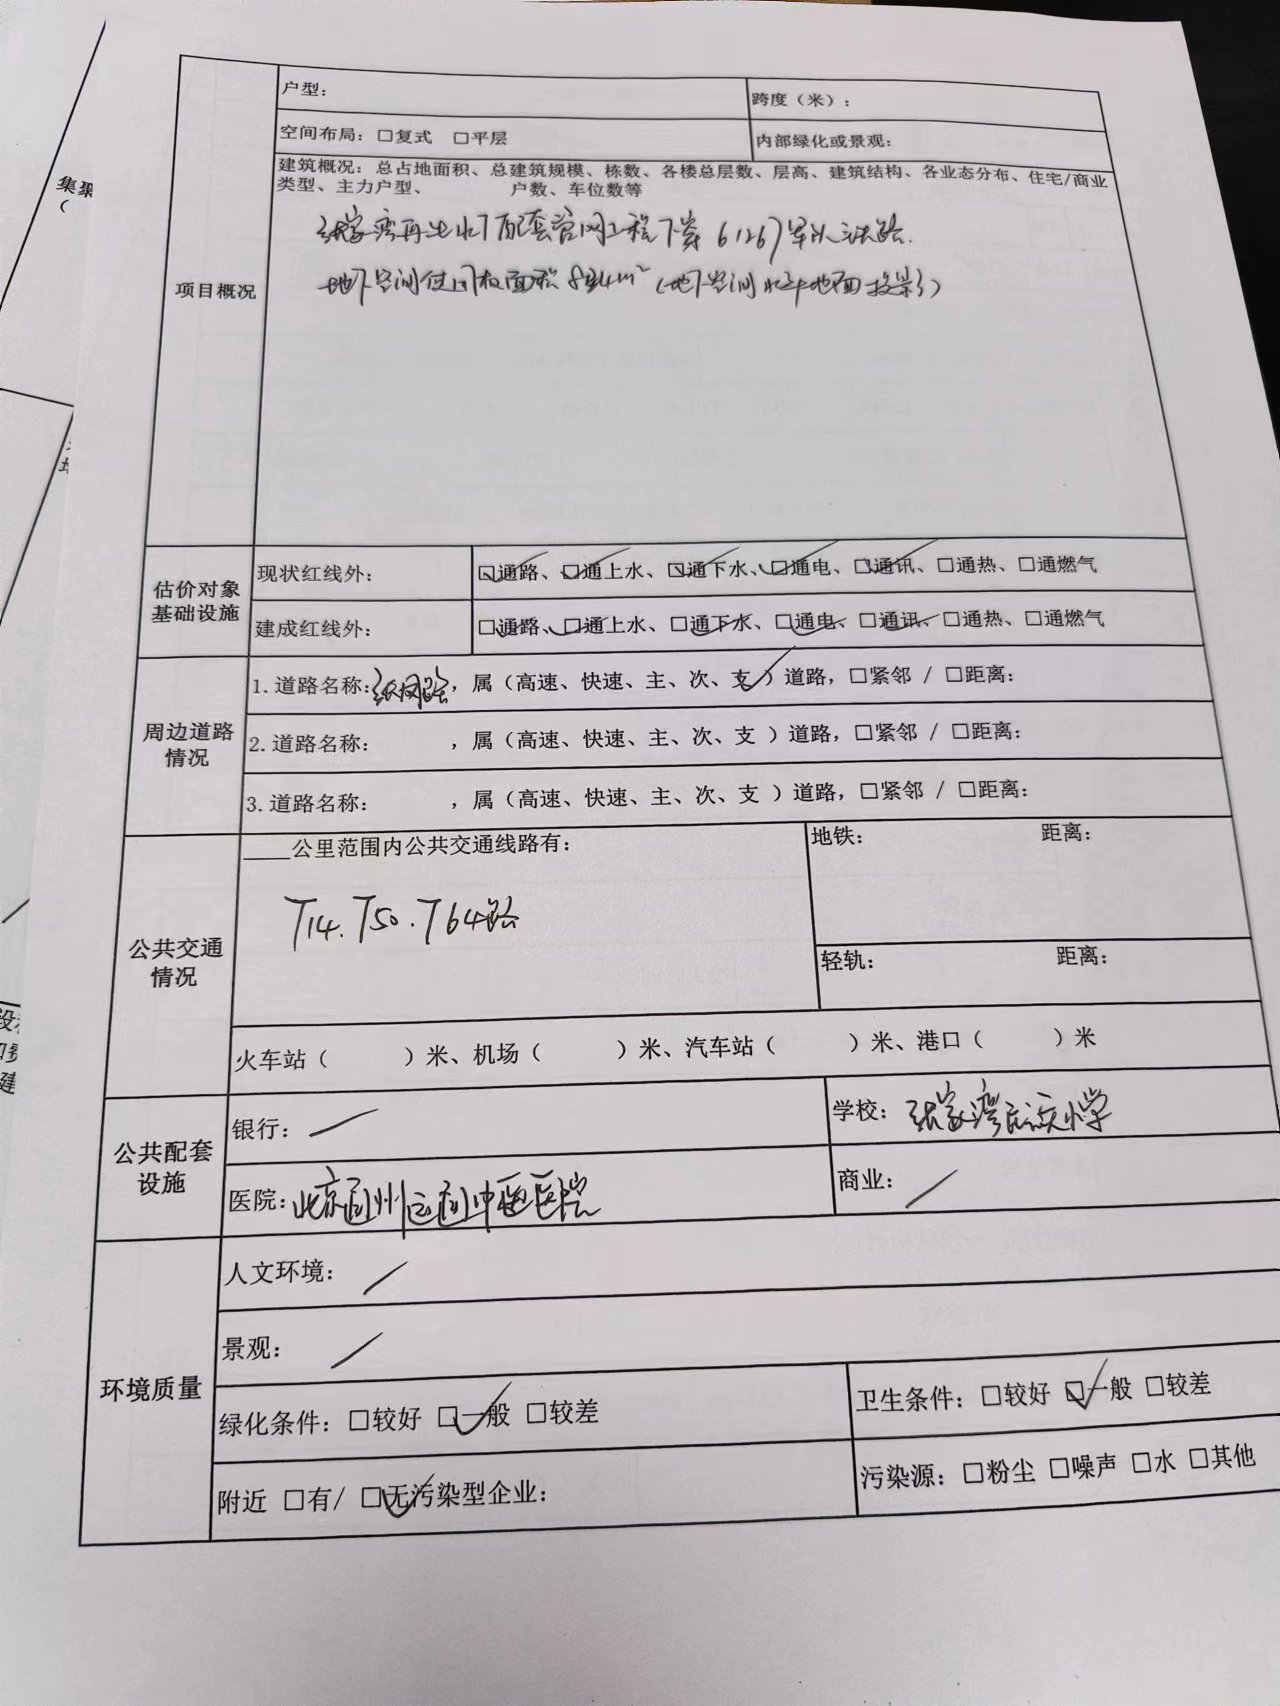 户型：
跨度（米）：
空间布局：□复式 □平层
内部绿化或景观：
建筑概况：总占地面积、总建筑规模、栋数、各楼总层数、层高、建筑结构、各业态分布、住宅/商业
类型、主力户型、 户数、车位数等
张家湾再生水厂配套管网工程下穿6126 铁路.
地下空间使用权面积 m²（地下空间水平地面投影）
项目概况
估价对象
基础设施
现状红线外：
☑通路、☑通上水、☑通下水、☑通电、☑通讯、□通热、□通燃气
建成红线外：
☑通路、☑通上水、☑通下水、☑通电、☑通讯、□通热、□通燃气
周边道路
情况
1.道路名称：张凤路，属（高速、快速、主、次、支✓）道路，□紧邻 / □距离：
2.道路名称： ，属（高速、快速、主、次、支 ）道路，□紧邻 / □距离：
3.道路名称： ，属（高速、快速、主、次、支 ）道路，□紧邻 / □距离：
公共交通
情况
____公里范围内公共交通线路有：
T14.T50.T64路
地铁： 距离：
轻轨： 距离：
火车站（ ）米、机场（ ）米、汽车站（ ）米、港口（ ）米
公共配套
设施
银行：/
学校：张家湾民族小学
医院：北京通州区通州中西医医院
商业：/
环境质量
人文环境：/
景观：/
绿化条件：□较好 ☑一般 □较差
卫生条件：□较好 ☑一般 □较差
附近 □有/ ☑无污染型企业：
污染源：□粉尘 □噪声 □水 □其他
集聚
（